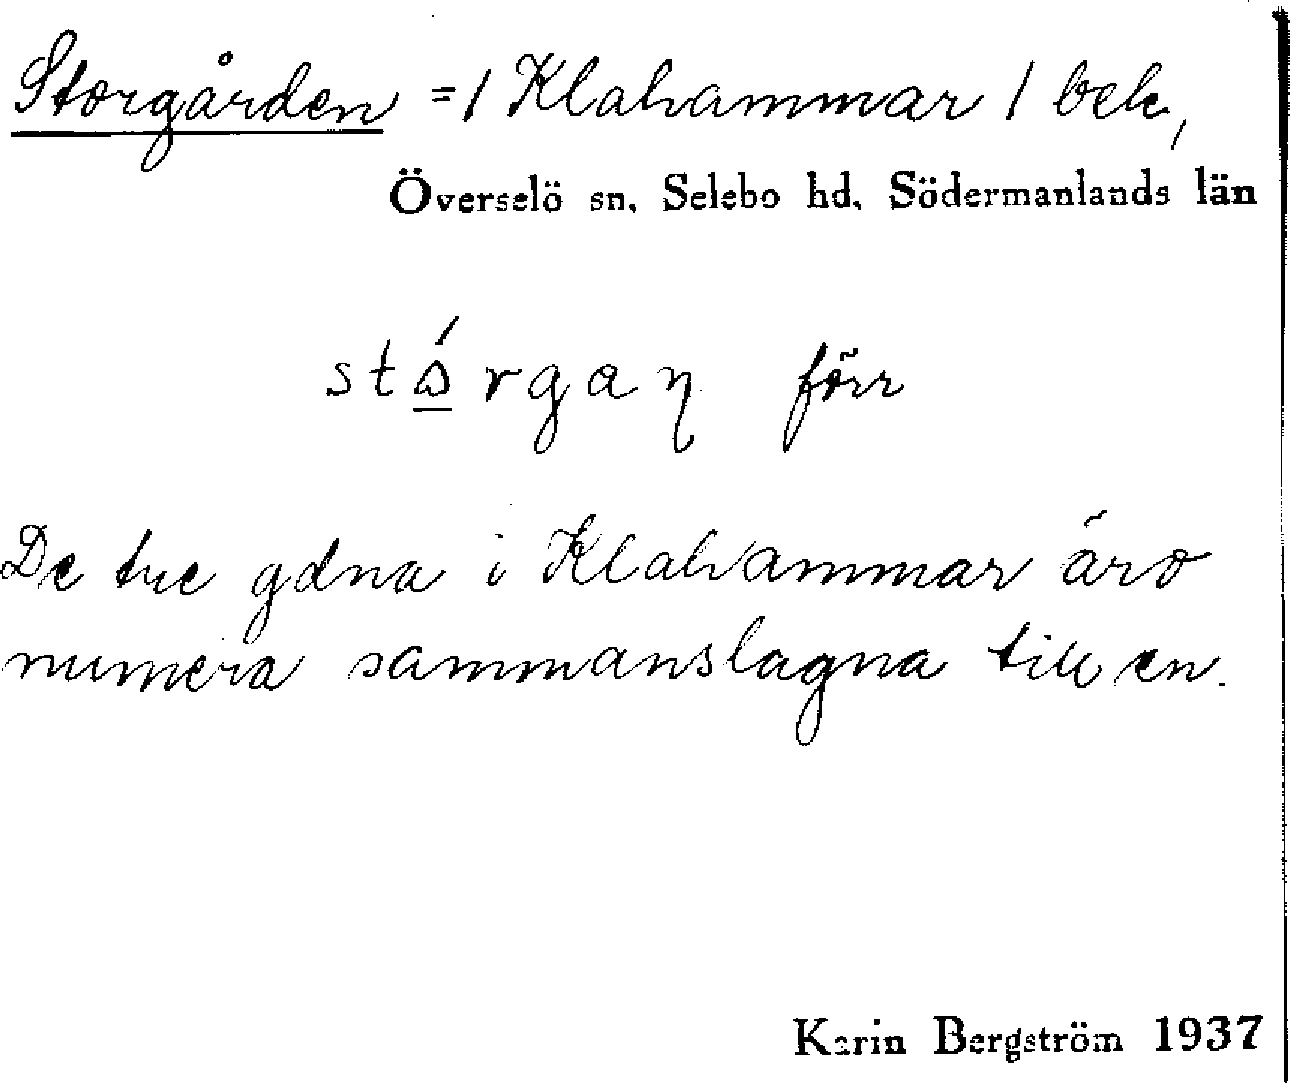 Storgården =/ Klahammar / bek,
Överselö sn. Selebo hd. Södermanlands län
stó̲rgaꞃ förr
De tre gdna i Klahammar äro
numera sammanslagna till en.
Karin Bergström 1937